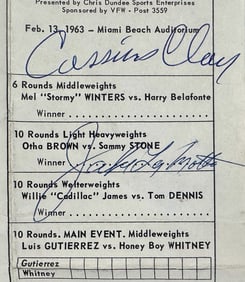 Presented by Chris Dundee Sports Enterprises
Sponsored by VFW - Post 3559
Feb. 13, 1963 — Miami Beach Auditorium
Cassius Clay
6 Rounds Middleweights
Mel "Stormy" WINTERS vs. Harry Belafonte
Winner
10 Rounds Light Heavyweights
Otha BROWN vs. Sammy STONE
Winner
Jake LaMotta
10 Rounds Welterweights
Willie "Cadillac" James vs. Tom DENNIS
Winner
10 Rounds. MAIN EVENT. Middleweights
Luis GUTIERREZ vs. Honey Boy WHITNEY
Gutierrez
Whitney